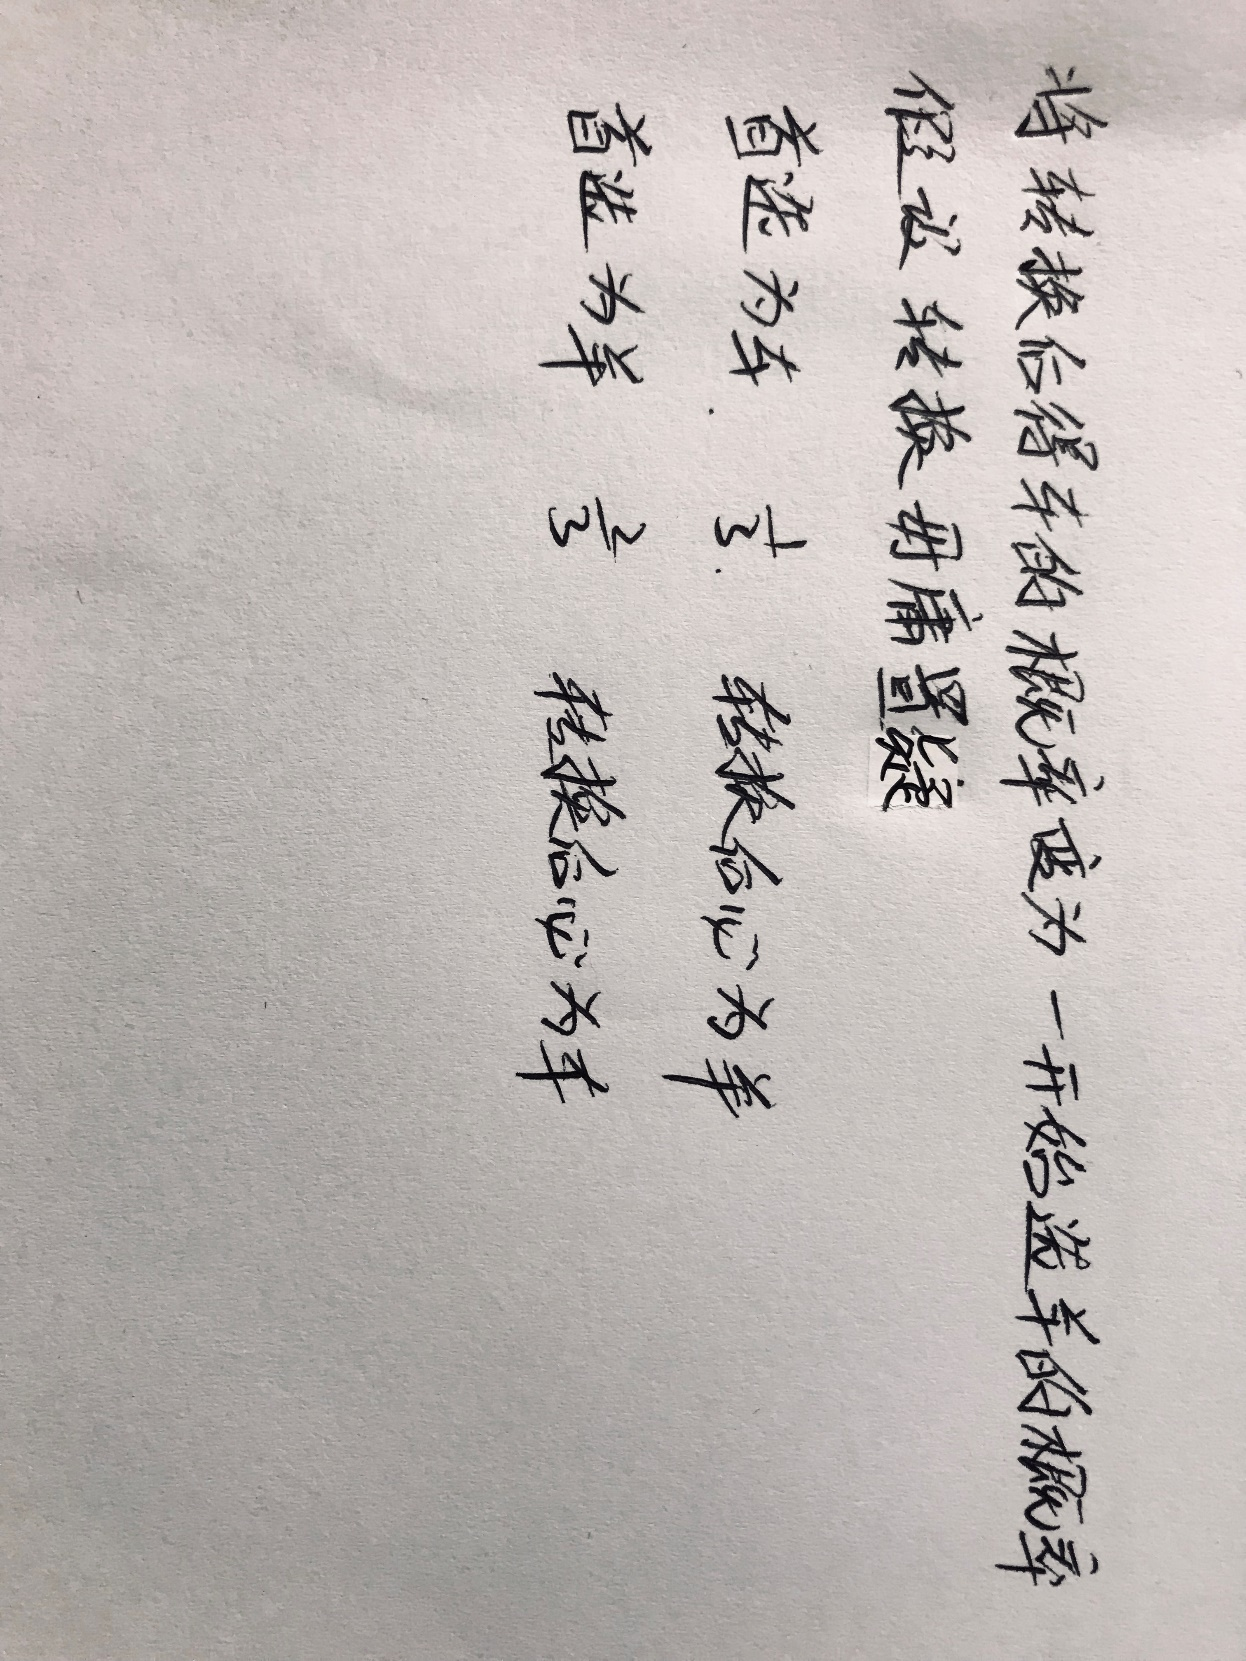 将转换后得车的概率变为一开始选羊的概率
假设转换毋庸置疑
首选为车 1/3 转换后必为羊
首选为羊 2/3 转换后必为车